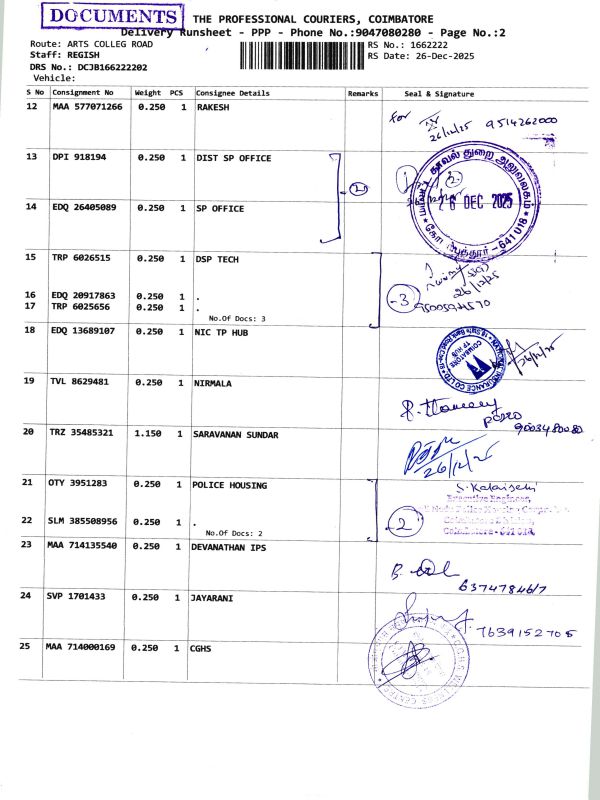 DOCUMENTS
THE PROFESSIONAL COURIERS, COIMBATORE
Delivery Runsheet - PPP - Phone No.:9047080280 - Page No.:2
Route: ARTS COLLEG ROAD
RS No.: 1662222
Staff: REGISH
RS Date: 26-Dec-2025
DRS No.: DCJB166222202
Vehicle:
S No Consignment No Weight PCS Consignee Details Remarks Seal & Signature
12 MAA 577071266 0.250 1 RAKESH
For
26/12/25 9514262000
13 DPI 918194 0.250 1 DIST SP OFFICE
1 2
2
26 DEC 2025
14 EDQ 26405089 0.250 1 SP OFFICE
641 018
15 TRP 6026515 0.250 1 DSP TECH
26/12/25
16 EDQ 20917863 0.250 1 .
17 TRP 6025656 0.250 1 .
-3
No.Of Docs: 3
18 EDQ 13689107 0.250 1 NIC TP HUB
COIMBATORE
TP HUB
26/12/25
19 TVL 8629481 0.250 1 NIRMALA
9003480080
20 TRZ 35485321 1.150 1 SARAVANAN SUNDAR
26/12/25
21 OTY 3951283 0.250 1 POLICE HOUSING
S. Kalaiselvi
Executive Engineer,
22 SLM 385508956 0.250 1 .
-2
No.Of Docs: 2
Coimbatore Division,
Coimbatore - 641 018.
23 MAA 714135540 0.250 1 DEVANATHAN IPS
24 SVP 1701433 0.250 1 JAYARANI
7639152705
25 MAA 714000169 0.250 1 CGHS